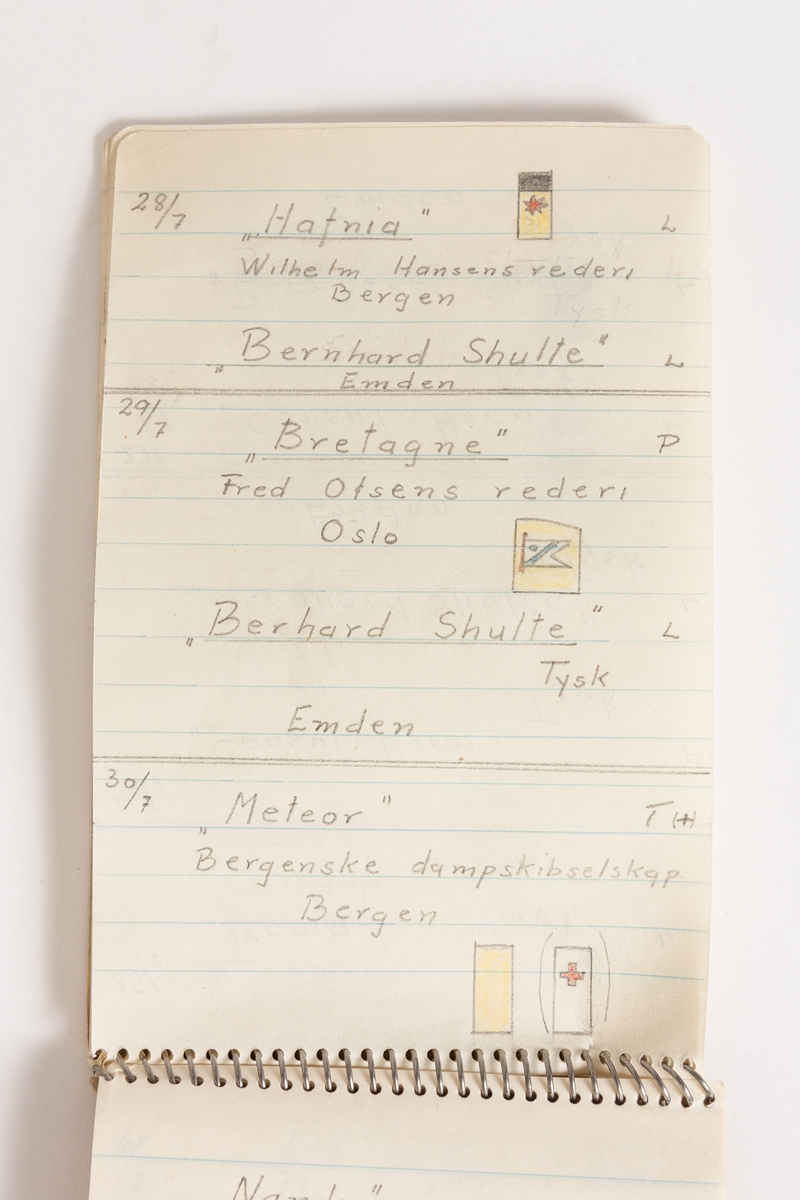 28/7 „Hafnia" L
Wilhelm Hansens rederi
Bergen
„Bernhard Shulte" L
Emden
29/7 „Bretagne" P
Fred Olsens rederi
Oslo
„Berhard Shulte" L
Tysk
Emden
30/7 „Meteor" T (+)
Bergenske dampskibselskap
Bergen